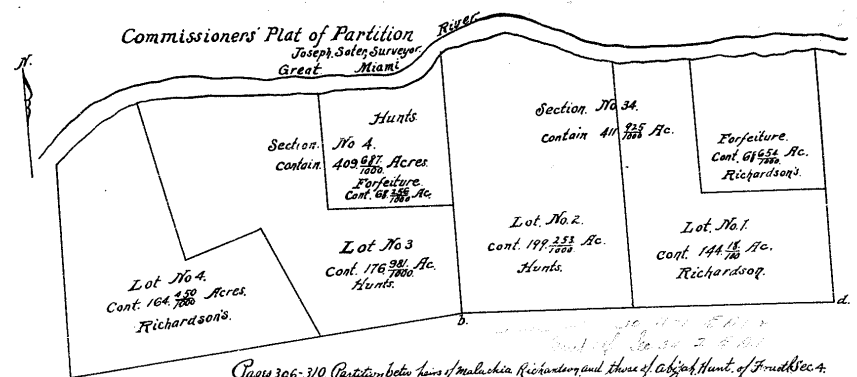 Commissioners' Plat of Partition
Joseph Soter, Surveyor
Great Miami River
N.
Hunts.
Section. No 4.
Contain. 409 687/1000 Acres.
Forfeiture
Cont. 68 256/1000 Ac.
Section. No 34.
Contain 411 925/1000 Ac.
Forfeiture.
Cont. 68 654/1000 Ac.
Richardson's.
Lot No 4.
Cont. 164. 450/1000 Acres.
Richardson's.
Lot No 3
Cont. 176 981/1000 Ac.
Hunts.
Lot. No. 2.
Cont. 199. 253/1000 Ac.
Hunts.
Lot. No. 1.
Cont. 144. 18/100 Ac.
Richardson.
b.
d.
Pages 306-310 Partition betw heirs of Malachia Richardson and those of Abijah Hunt. of Sec 4.